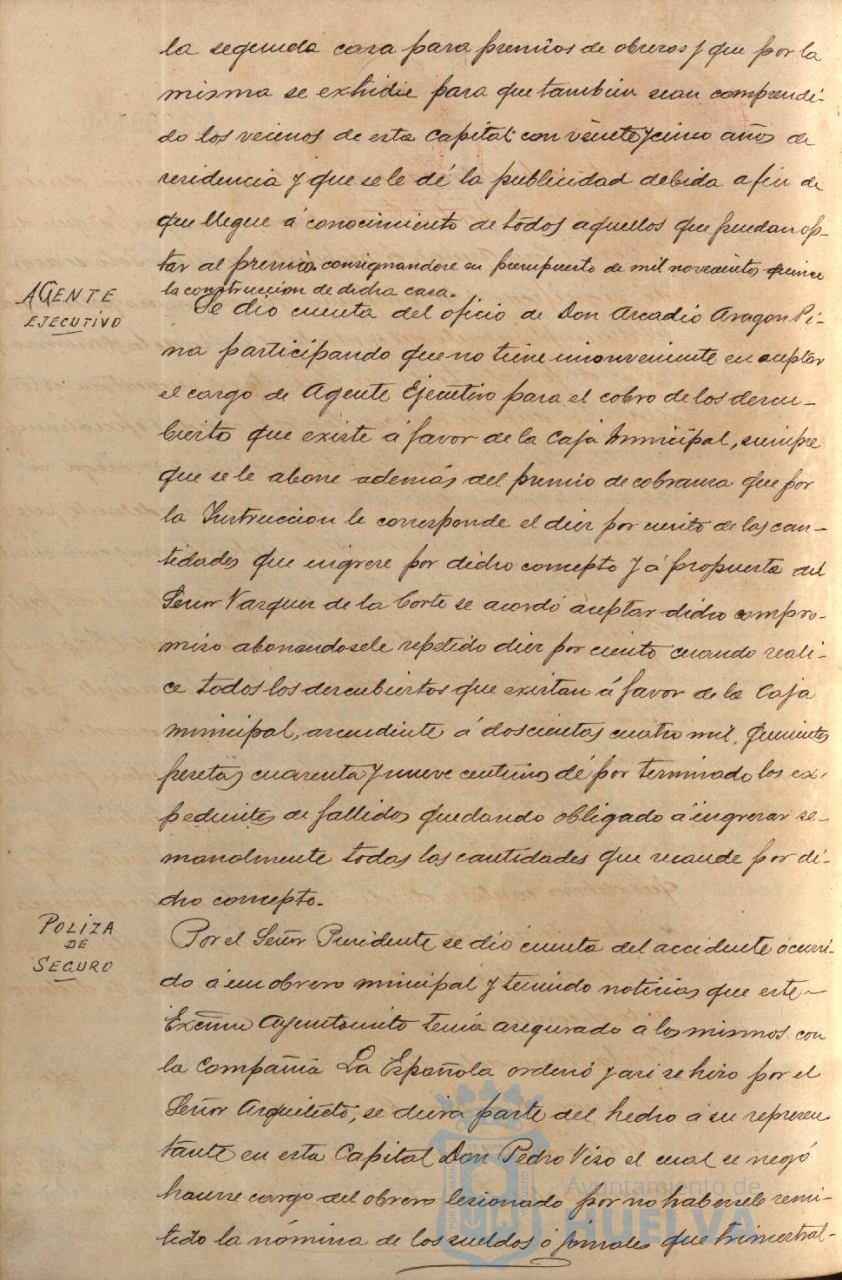 la segunda casa para premios de obreros y que por la
misma se exhidie para que tambien sean comprendi-
do los vecinos de esta Capital con veinte y cinco años de
residencia y que se le dé la publicidad debida a fin de
que llegue á conocimiento de todos aquellos que puedan op-
tar al premio consignandose en presupuesto de mil novecientos quince
la construccion de dicha casa.
AGENTE
EJECUTIVO
Se dio cuenta del oficio de Don Arcadio Aragon Pi-
na participando que no tiene inconveniente en aceptar
el cargo de Agente Ejecutivo para el cobro de los descu-
bierto que existe á favor de la Caja Municipal, siempre
que se le abone además del premio de cobranza que por
la Instruccion le corresponde el diez por ciento de las can-
tidades que ingrese por dicho concepto y á propuesta del
Señor Vazquez de la Corte se acordó aceptar dicho compro-
miso abonandosele repetido diez por ciento cuando reali-
ce todos los descubiertos que existan á favor de la Caja
municipal, ascendiente á doscientas cuatro mil, quinientas
pesetas cuarenta y nueve centimos dé por terminado los ex-
pedientes de fallidos quedando obligado á ingresar se-
manalmente todas las cantidades que recaude por di-
cho concepto.
POLIZA
DE
SEGURO
Por el Señor Presidente se dió cuenta del accidente ocurri-
do á un obrero municipal y teniendo noticias que este
Excmo Ayuntamiento tenia asegurado á los mismos con
la Compañia La Española ordenó y asi se hizo por el
Señor Arquitecto, se diera parte del hecho á su represen
tante en esta Capital Don Pedro Vizo el cual se negó
hacerse cargo del obrero lesionado por no habersele remi-
tido la nómina de los sueldos ó jornales que trimestral-
Ayuntamiento de
HUELVA